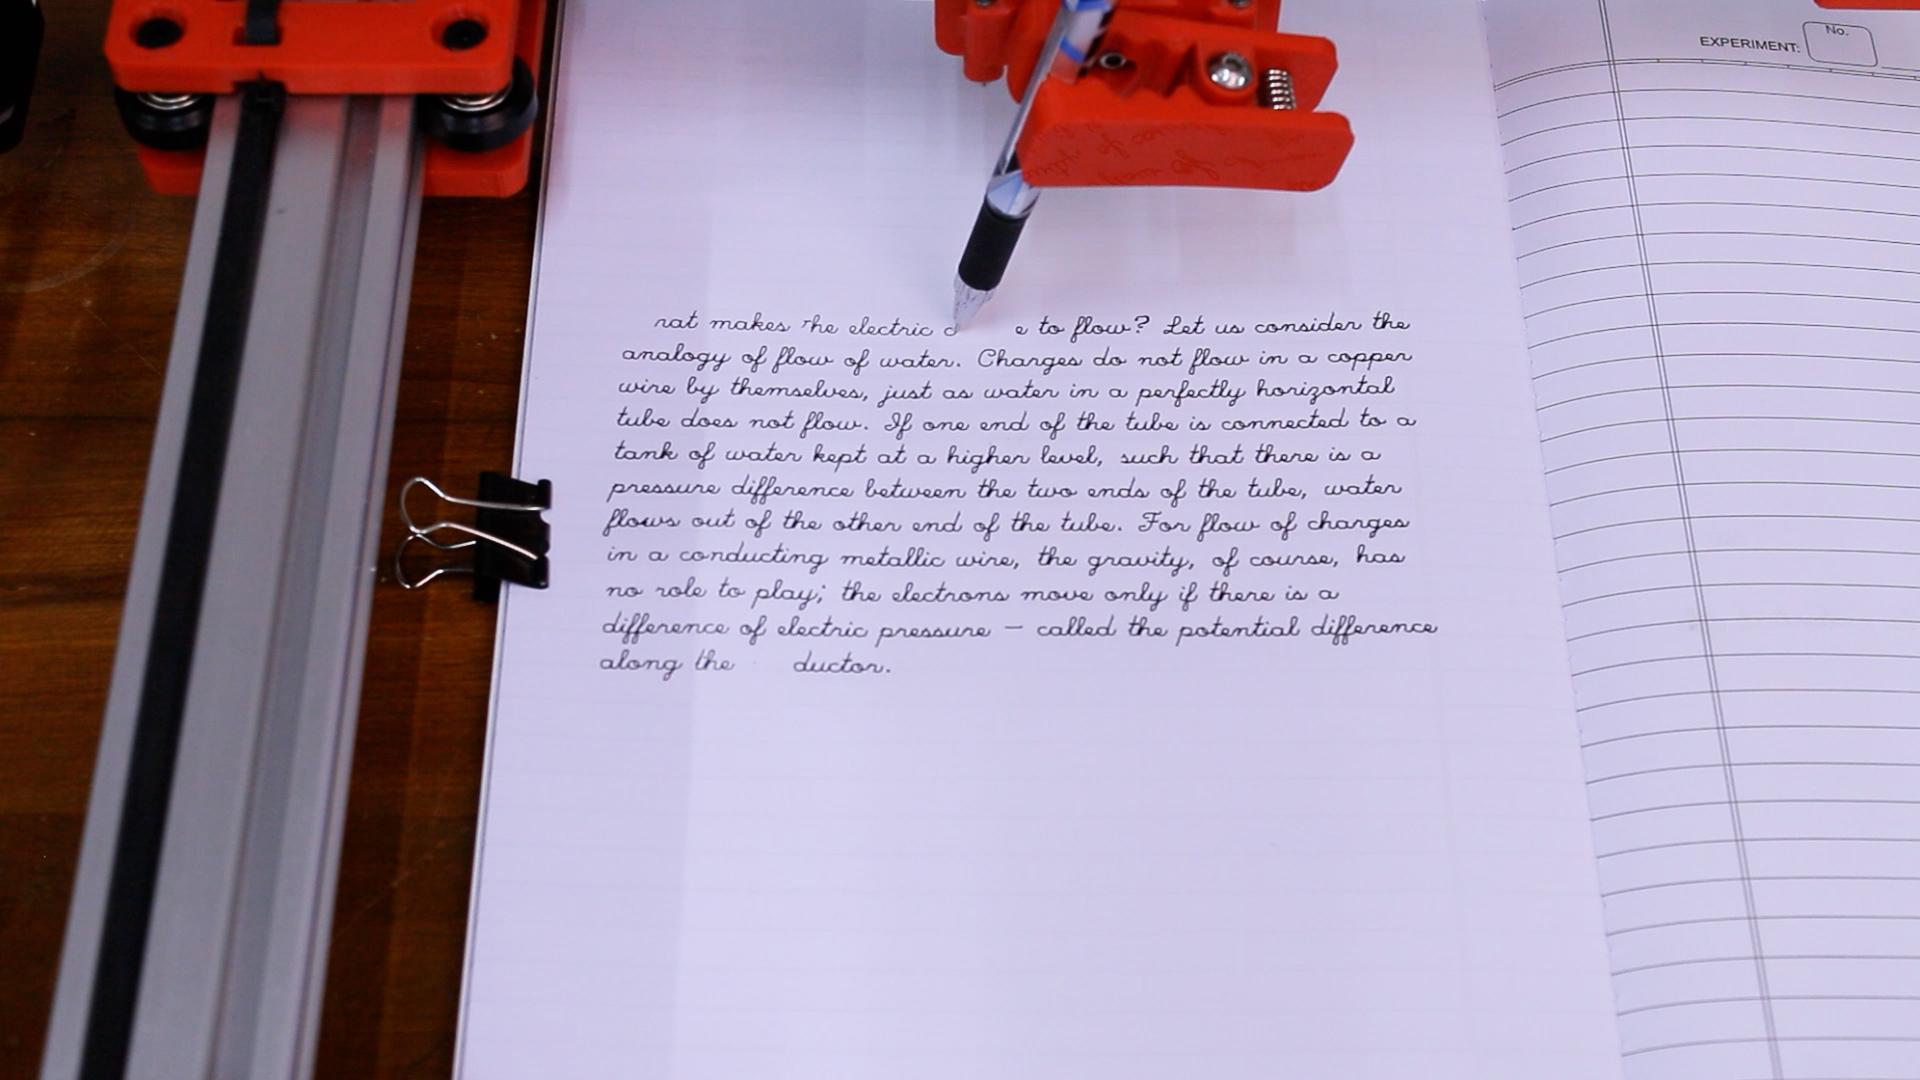 EXPERIMENT: No.
makes the electric to flow? Let us consider the
analogy of flow of water. Charges do not flow in a copper
wire by themselves, just as water in a perfectly horizontal
tube does not flow. If one end of the tube is connected to a
tank of water kept at a higher level, such that there is a
pressure difference between the two ends of the tube, water
flows out of the other end of the tube. For flow of charges
in a conducting metallic wire, the gravity, of course, has
no role to play; the electrons move only if there is a
difference of electric pressure – called the potential difference
along the ductor.